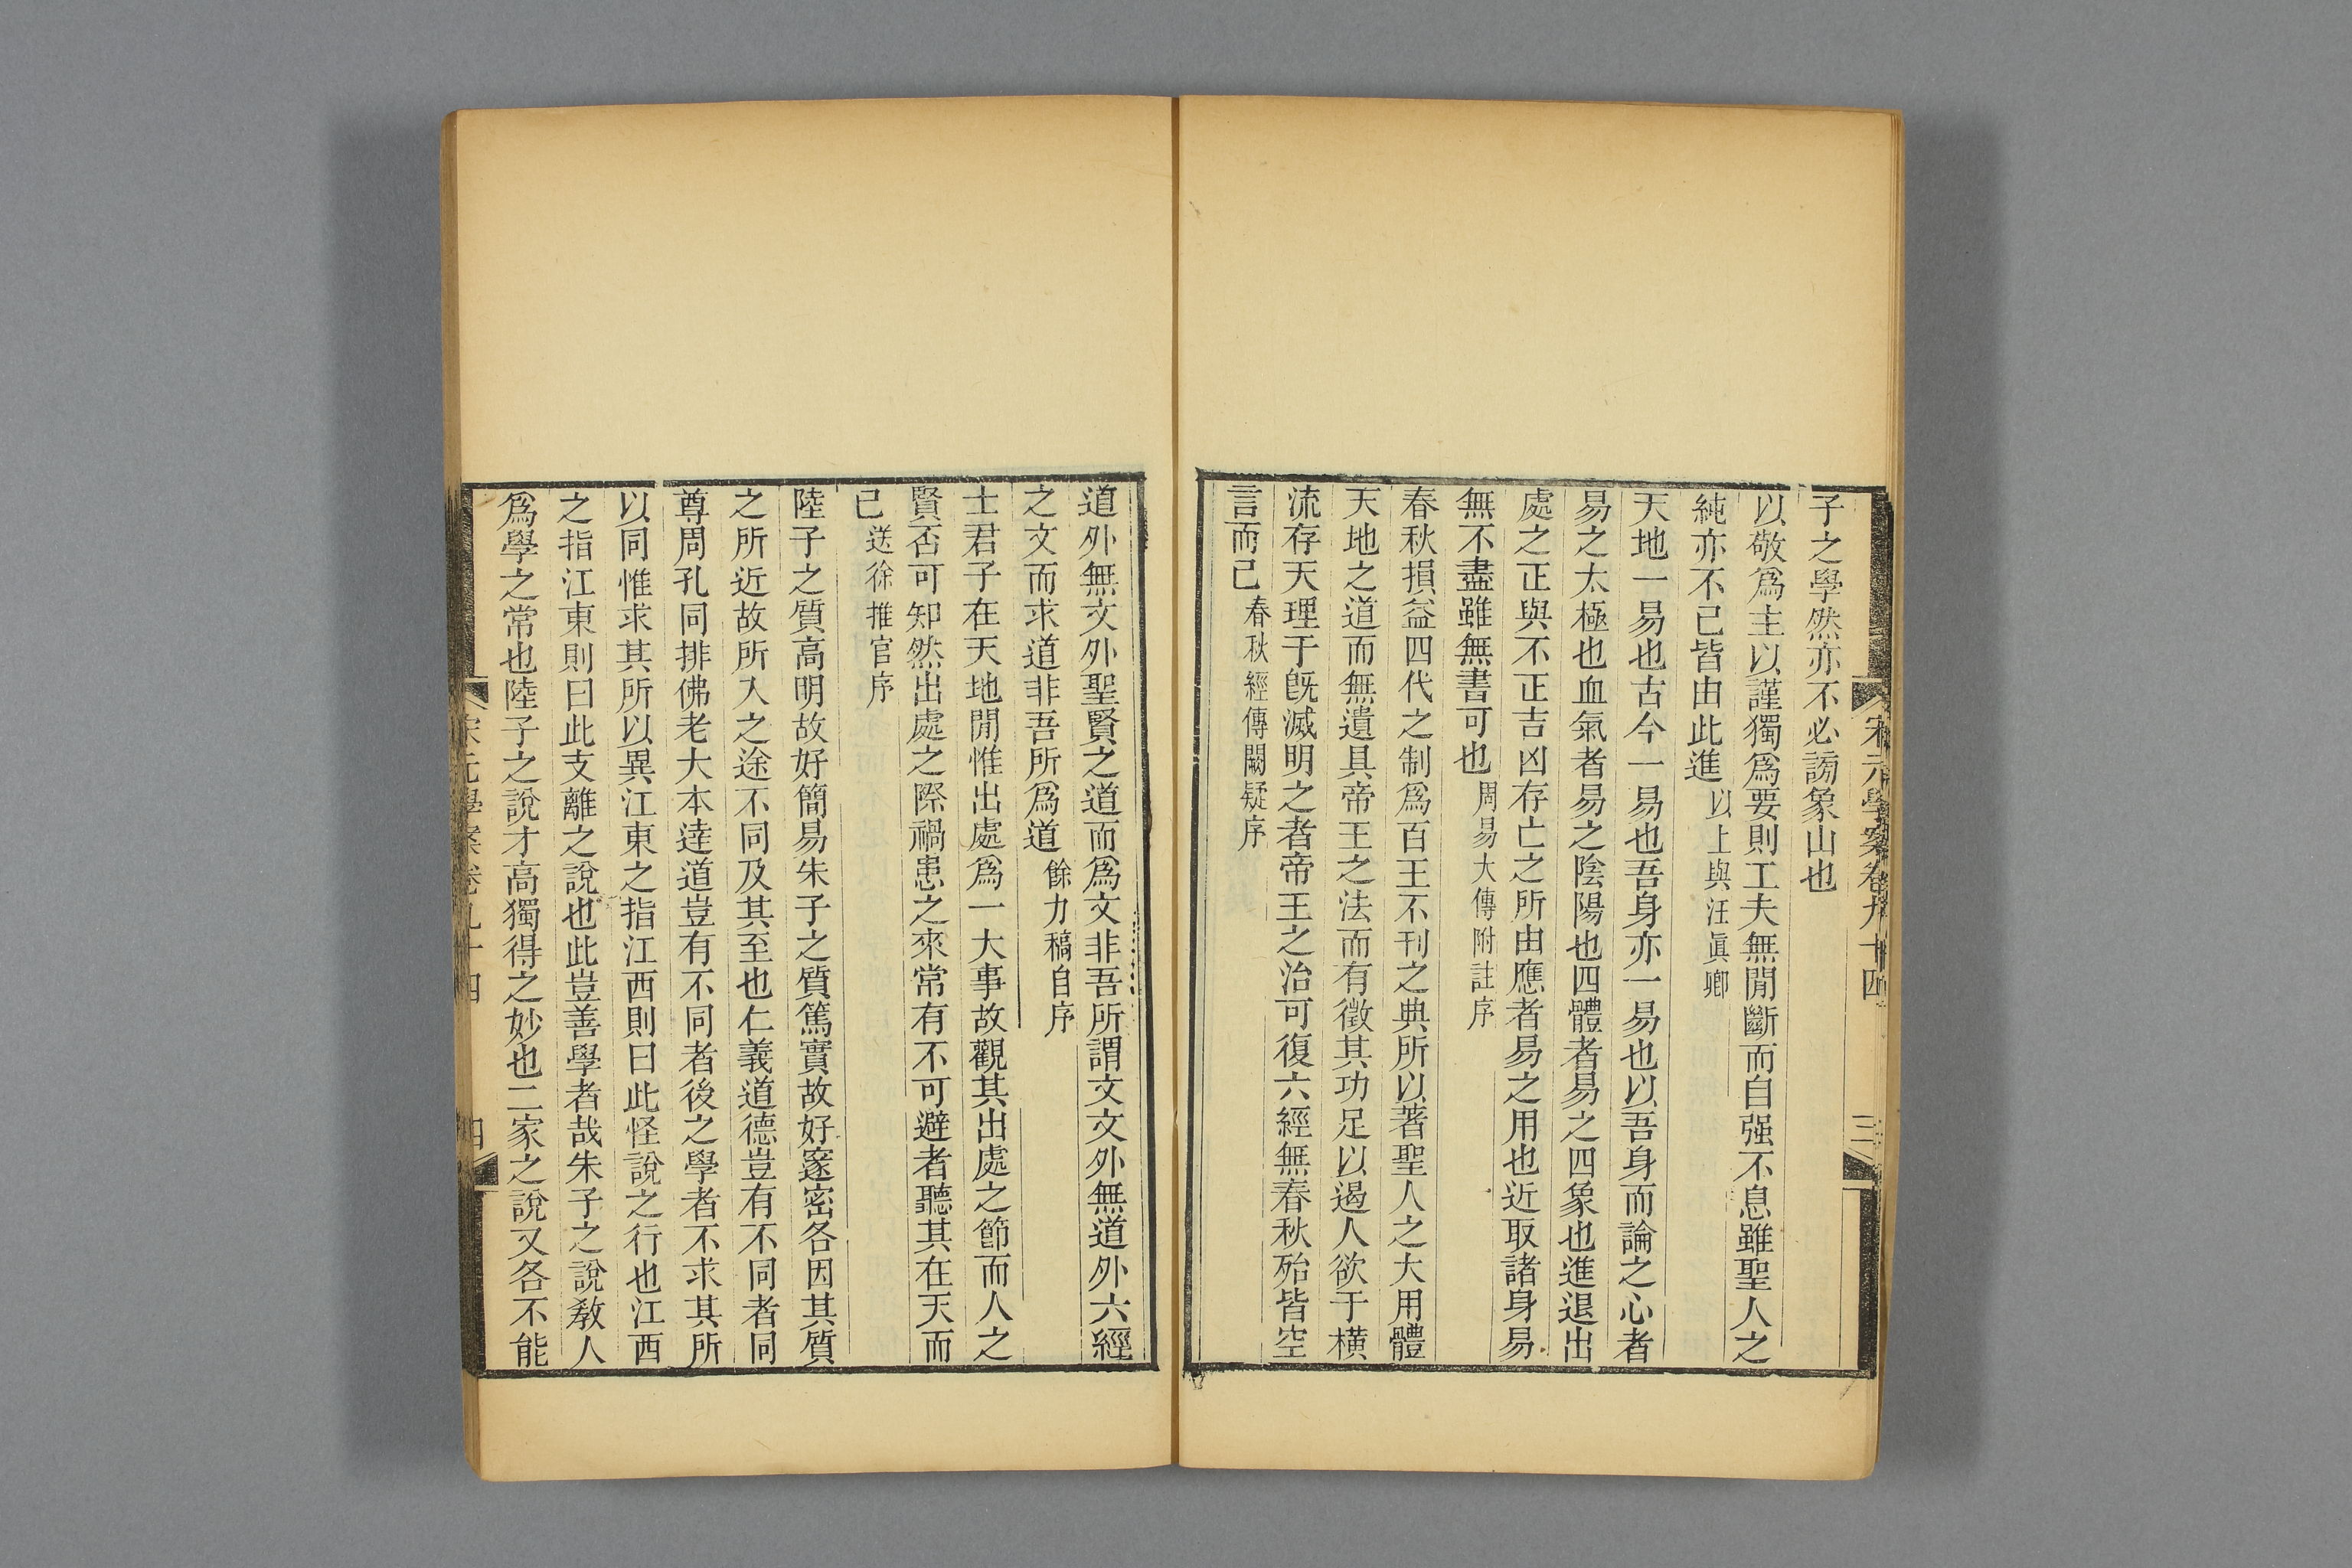 宋元學案卷九十四
三
子之學然亦不必謗象山也
以敬爲主以謹獨爲要則工夫無閒斷而自强不息雖聖人之
純亦不已皆由此進以上與汪眞卿
天地一易也古今一易也吾身亦一易也以吾身而論之心者
易之太極也血氣者易之陰陽也四體者易之四象也進退出
處之正與不正吉凶存亡之所由應者易之用也近取諸身易
無不盡雖無書可也周易大傳附註序
春秋損益四代之制爲百王不刊之典所以著聖人之大用體
天地之道而無遺具帝王之法而有徵其功足以遏人欲于橫
流存天理于旣滅明之者帝王之治可復六經無春秋殆皆空
言而已春秋經傳闕疑序
道外無文外聖賢之道而爲文非吾所謂文文外無道外六經
之文而求道非吾所爲道餘力稿自序
士君子在天地閒惟出處爲一大事故觀其出處之節而人之
賢否可知然出處之際禍患之來常有不可避者聽其在天而
已送徐推官序
陸子之質高明故好簡易朱子之質篤實故好邃密各因其質
之所近故所入之途不同及其至也仁義道德豈有不同者同
尊周孔同排佛老大本達道豈有不同者後之學者不求其所
以同惟求其所以異江東之指江西則曰此怪說之行也江西
之指江東則曰此支離之說也此豈善學者哉朱子之說敎人
爲學之常也陸子之說才高獨得之妙也二家之說又各不能
宋元學案卷九十四
四